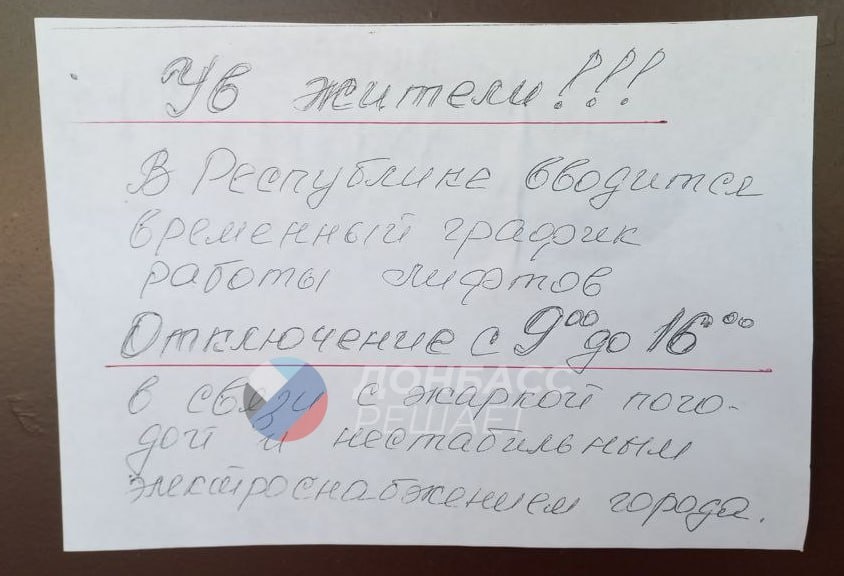 Ув жители!!!
В Республике вводится
временный график
работы лифтов
Отключение с 9⁰⁰ до 16⁰⁰
в связи с жаркой пого-
дой и нестабильным
электроснабжением города.
ДОНБАСС
РЕШАЕТ